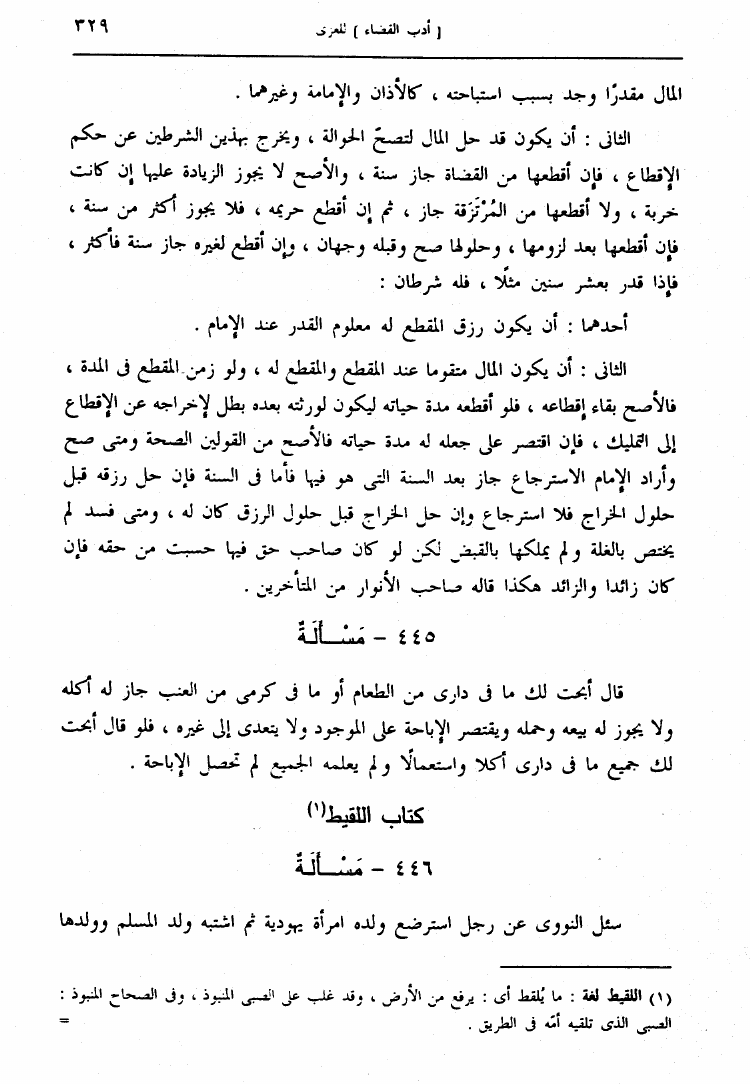 [ أدب القضاء ] للغزى ٣٢٩
المال مقدرًا وجد بسبب استباحته ، كالأذان والإمامة وغيرهما .
الثانى : أن يكون قد حل المال لتصحّ الحوالة ، ويخرج بهذين الشرطين عن حكم
الإقطاع ، فإن أقطعها من القضاة جاز سنة ، والأصح لا يجوز الزيادة عليها إن كانت
خربة ، ولا أقطعها من المُرْتَزَقة جاز ، ثم إن أقطع حريمه ، فلا يجوز أكثر من سنة ،
فإن أقطعها بعد لزومها ، وحلولها صح وقبله وجهان ، وإن أقطع لغيره جاز سنة فأكثر ،
فإذا قدر بعشر سنين مثلًا ، فله شرطان :
أحدهما : أن يكون رزق المقطع له معلوم القدر عند الإمام .
الثانى : أن يكون المال متقوما عند المقطع والمقطع له ، ولو زمن المقطع فى المدة ،
فالأصح بقاء إقطاعه ، فلو أقطعه مدة حياته ليكون لورثته بعده بطل لإخراجه عن الإقطاع
إلى التمليك ، فإن اقتصر على جعله له مدة حياته فالأصح من القولين الصحة ومتى صح
وأراد الإمام الاسترجاع جاز بعد السنة التى هو فيها فأما فى السنة فإن حل رزقه قبل
حلول الخراج فلا استرجاع وإن حل الخراج قبل حلول الرزق كان له ، ومتى فسد لم
يختص بالغلة ولم يملكها بالقبض لكن لو كان صاحب حق فيها حسبت من حقه فإن
كان زائدا والزائد هكذا قاله صاحب الأنوار من المتأخرين .
٤٤٥ - مَسْـأَلَةٌ
قال أبحت لك ما فى دارى من الطعام أو ما فى كرمى من العنب جاز له أكله
ولا يجوز له بيعه وحمله ويقتصر الإباحة على الموجود ولا يتعدى إلى غيره ، فلو قال أبحت
لك جميع ما فى دارى أكلا واستعمالًا ولم يعلمه الجميع لم تحصل الإباحة .
كتاب اللقيط(١)
٤٤٦ - مَسْـأَلَةٌ
سئل النووى عن رجل استرضع ولده امرأة يهودية ثم اشتبه ولد المسلم وولدها
(١) اللقيط لغة : ما يُلقط أى : يرفع من الأرض ، وقد غلب على الصبى المنبوذ ، وفى الصحاح المنبوذ :
الصبى الذى تلقيه أمّه فى الطريق . =